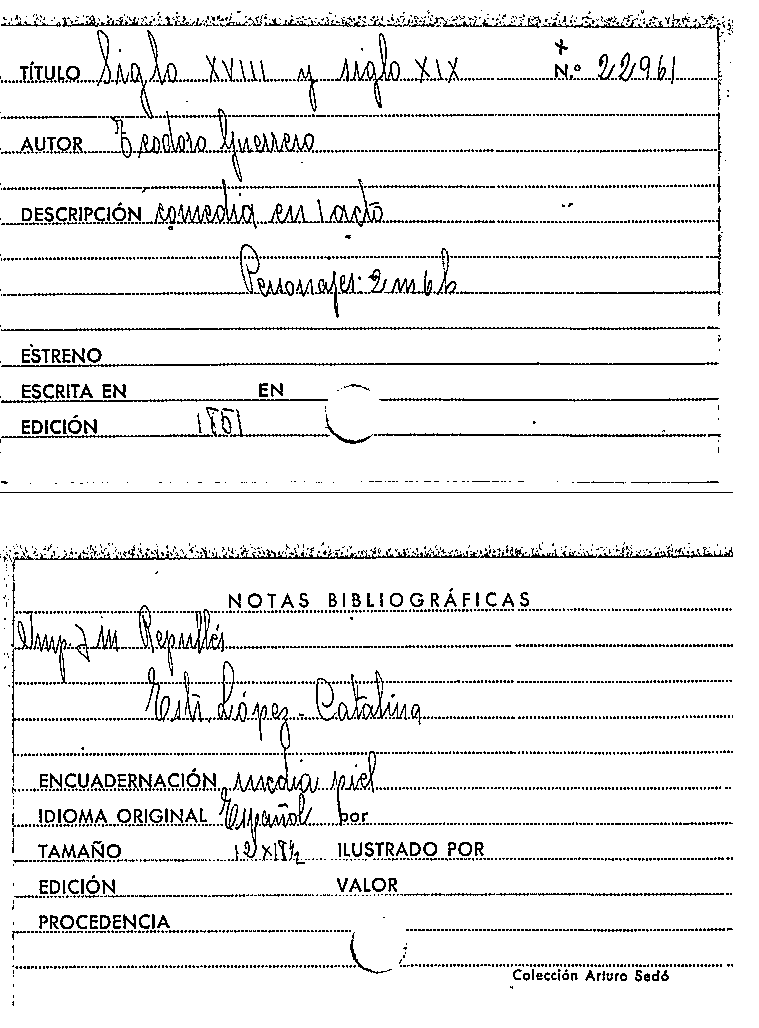 TÍTULO Siglo XVIII y siglo XIX N.º 22961
AUTOR Teodoro Guerrero
DESCRIPCIÓN comedia en 1 acto
Personajes: 2 m 6 h
ESTRENO
ESCRITA EN EN
EDICIÓN 1851
NOTAS BIBLIOGRÁFICAS
Imp J m Repullés
Estr. López - Catalina
ENCUADERNACIÓN media piel
IDIOMA ORIGINAL Español por
TAMAÑO 12 x 18½ ILUSTRADO POR
EDICIÓN VALOR
PROCEDENCIA
Colección Arturo Sedó